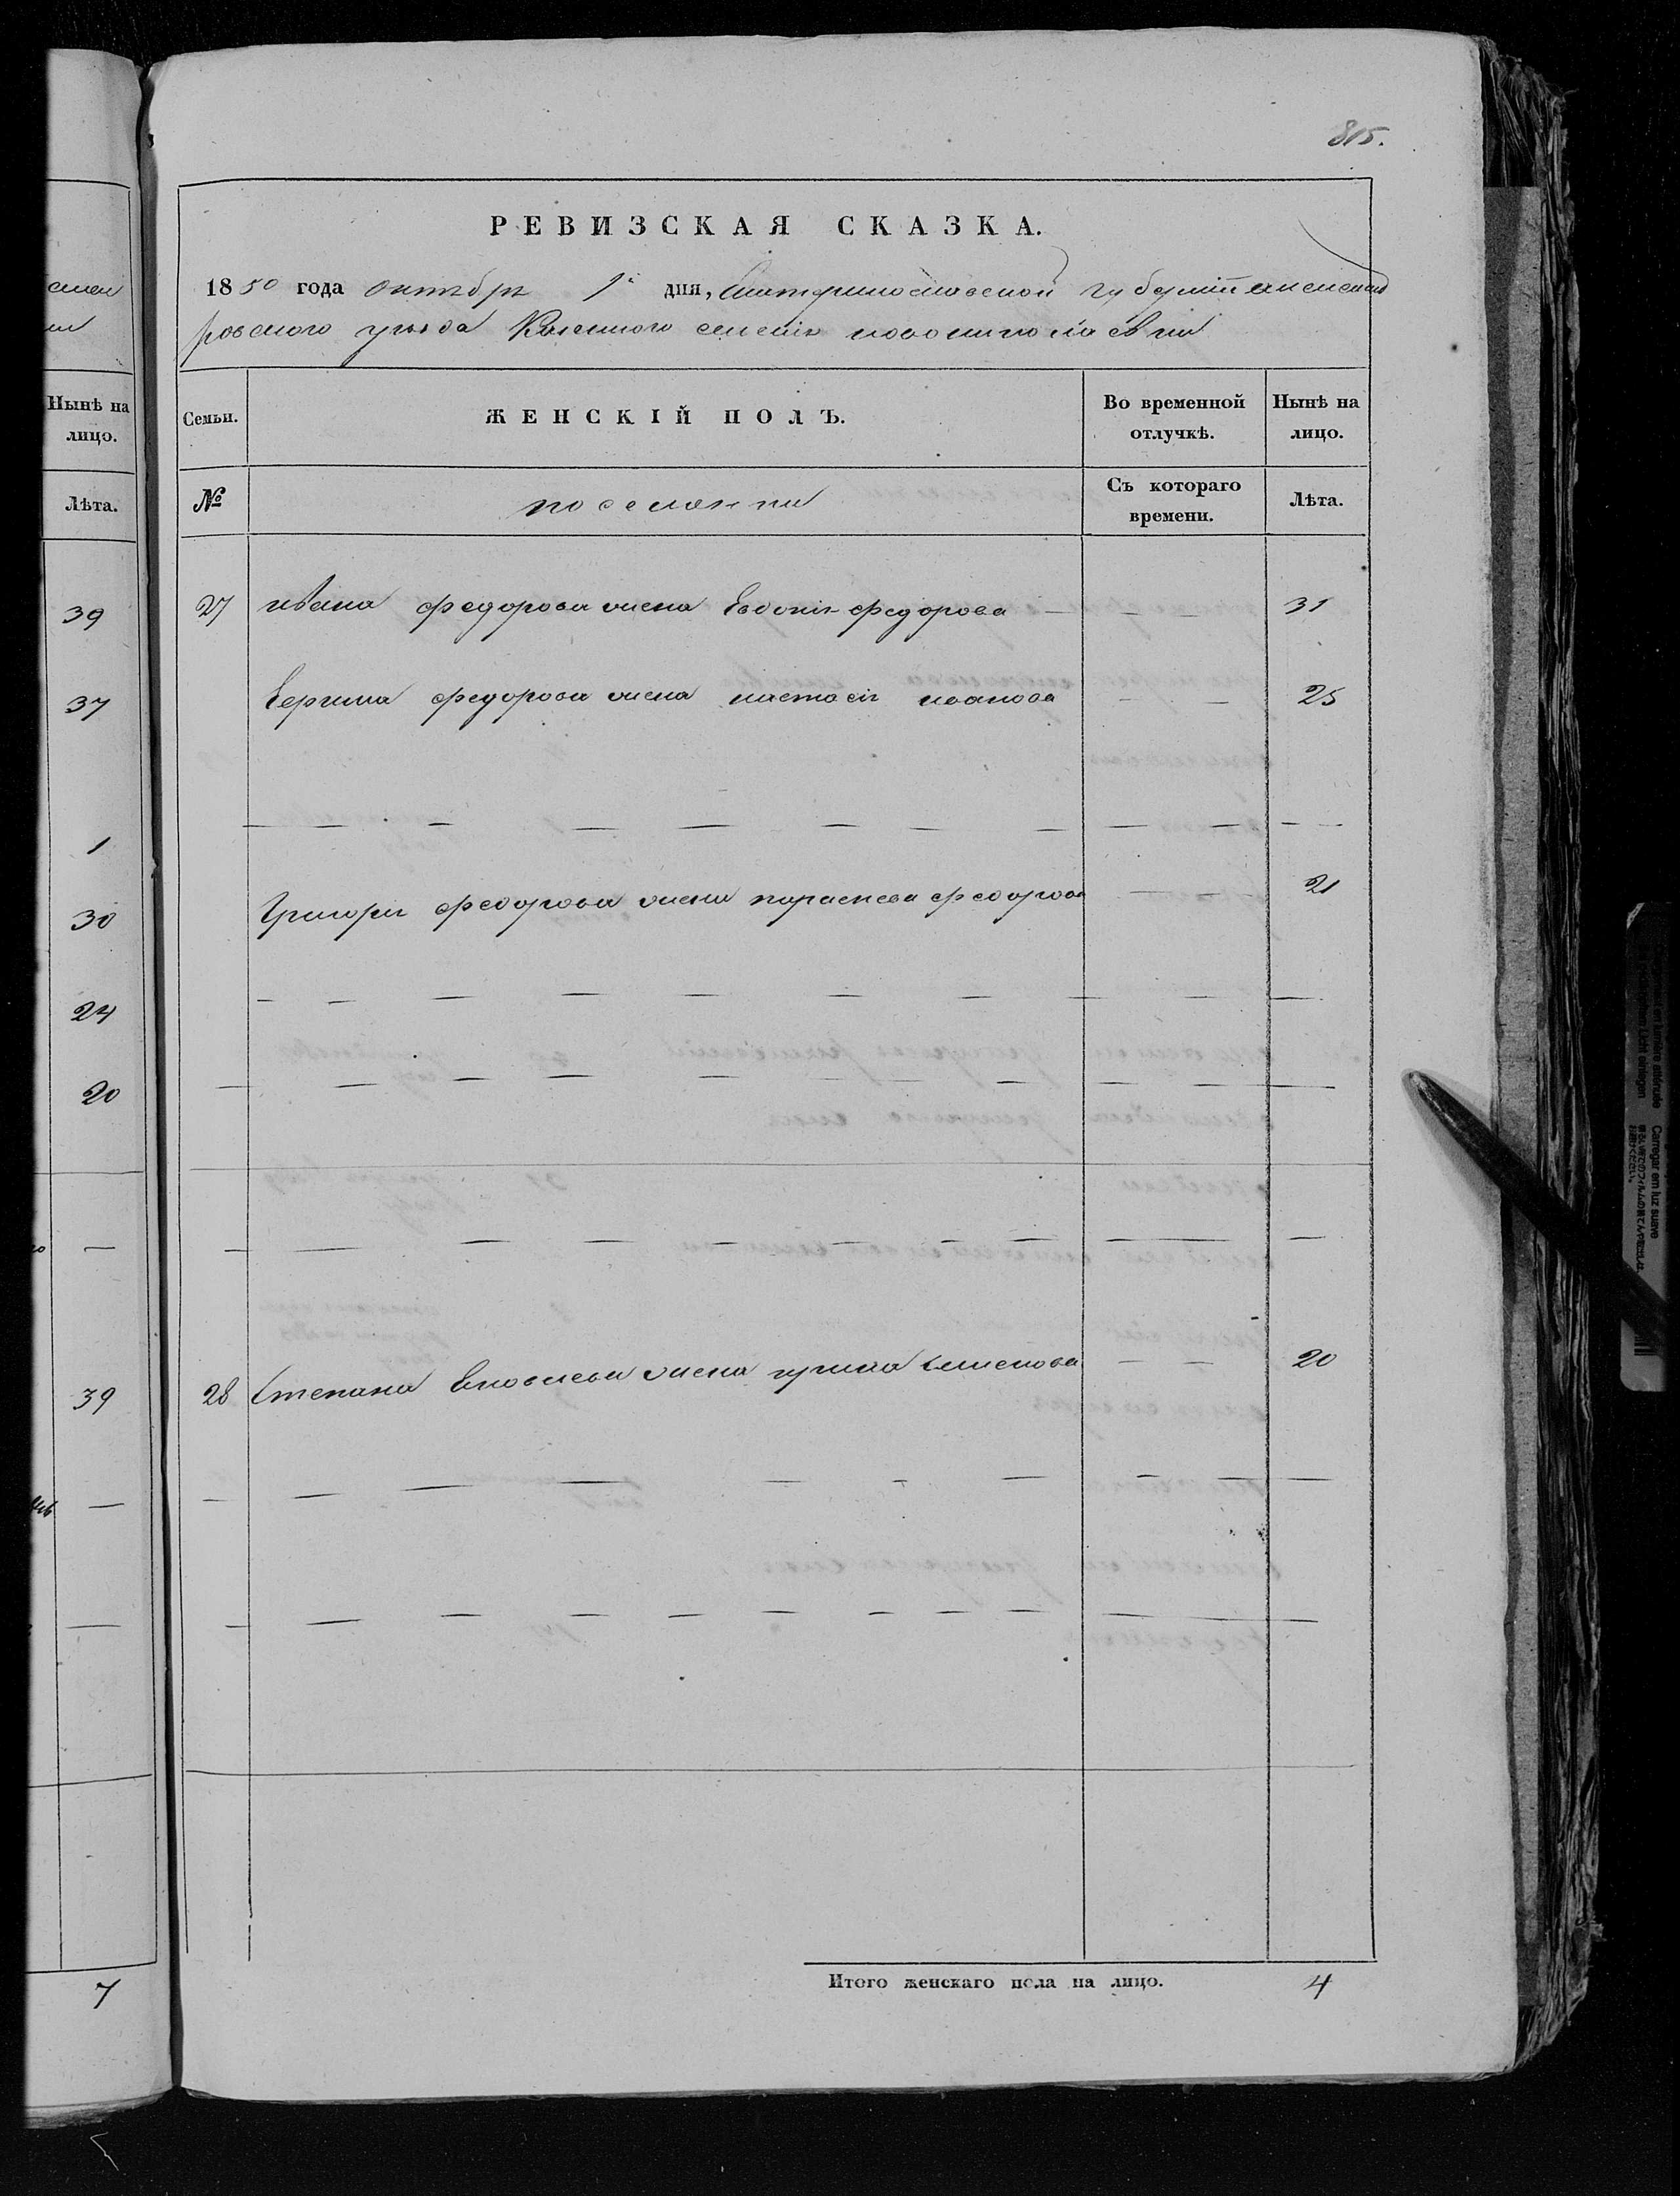 815.
РЕВИЗСКАЯ СКАЗКА.
1850 года октебря 1го дня, Екатеринославской губерніи александ
ровского уезда Казенного селенія новониколаевки
Нынѣ на
лицо.
Лѣта.
39
37
1
30
24
20
—
39
—
—
7
Семьи. ЖЕНСКІЙ ПОЛЪ. Во временной отлучкѣ. Нынѣ на лицо.
№ поселянки Съ котораго времени. Лѣта.
27 ивана федорова жена Евдокія федорова — — — 31
федорова жена настасія иванова — — 25
— — — — — — — — — — — —
Григорія федорова жена параскева федорова — — 21
— — — — — — — — — —
— — — — — — — — — —
— — — — — — — — — —
28 Степана жена семенова — — 20
— — — — — — — — — —
— — — — — — — — — — —
Итого женскаго пола на лицо. 4